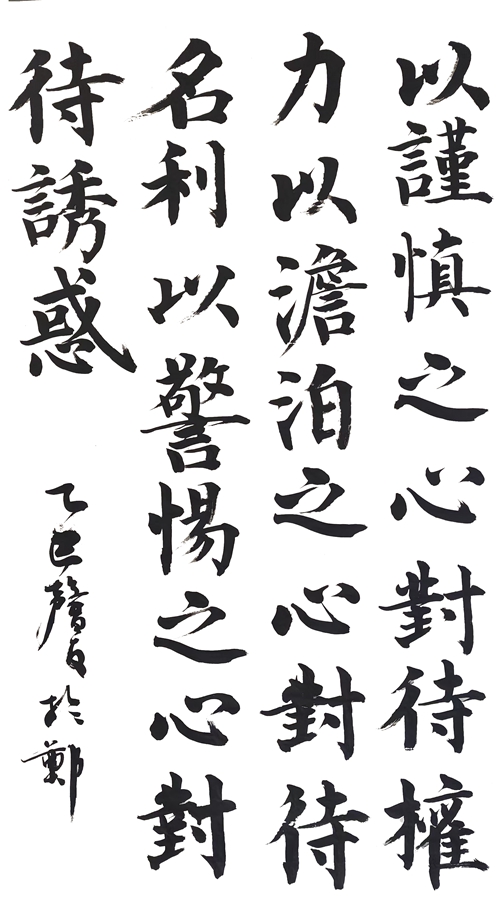 以謹慎之心對待權
力以澹泊之心對待
名利以警惕之心對
待誘惑
乙巳 於鄭